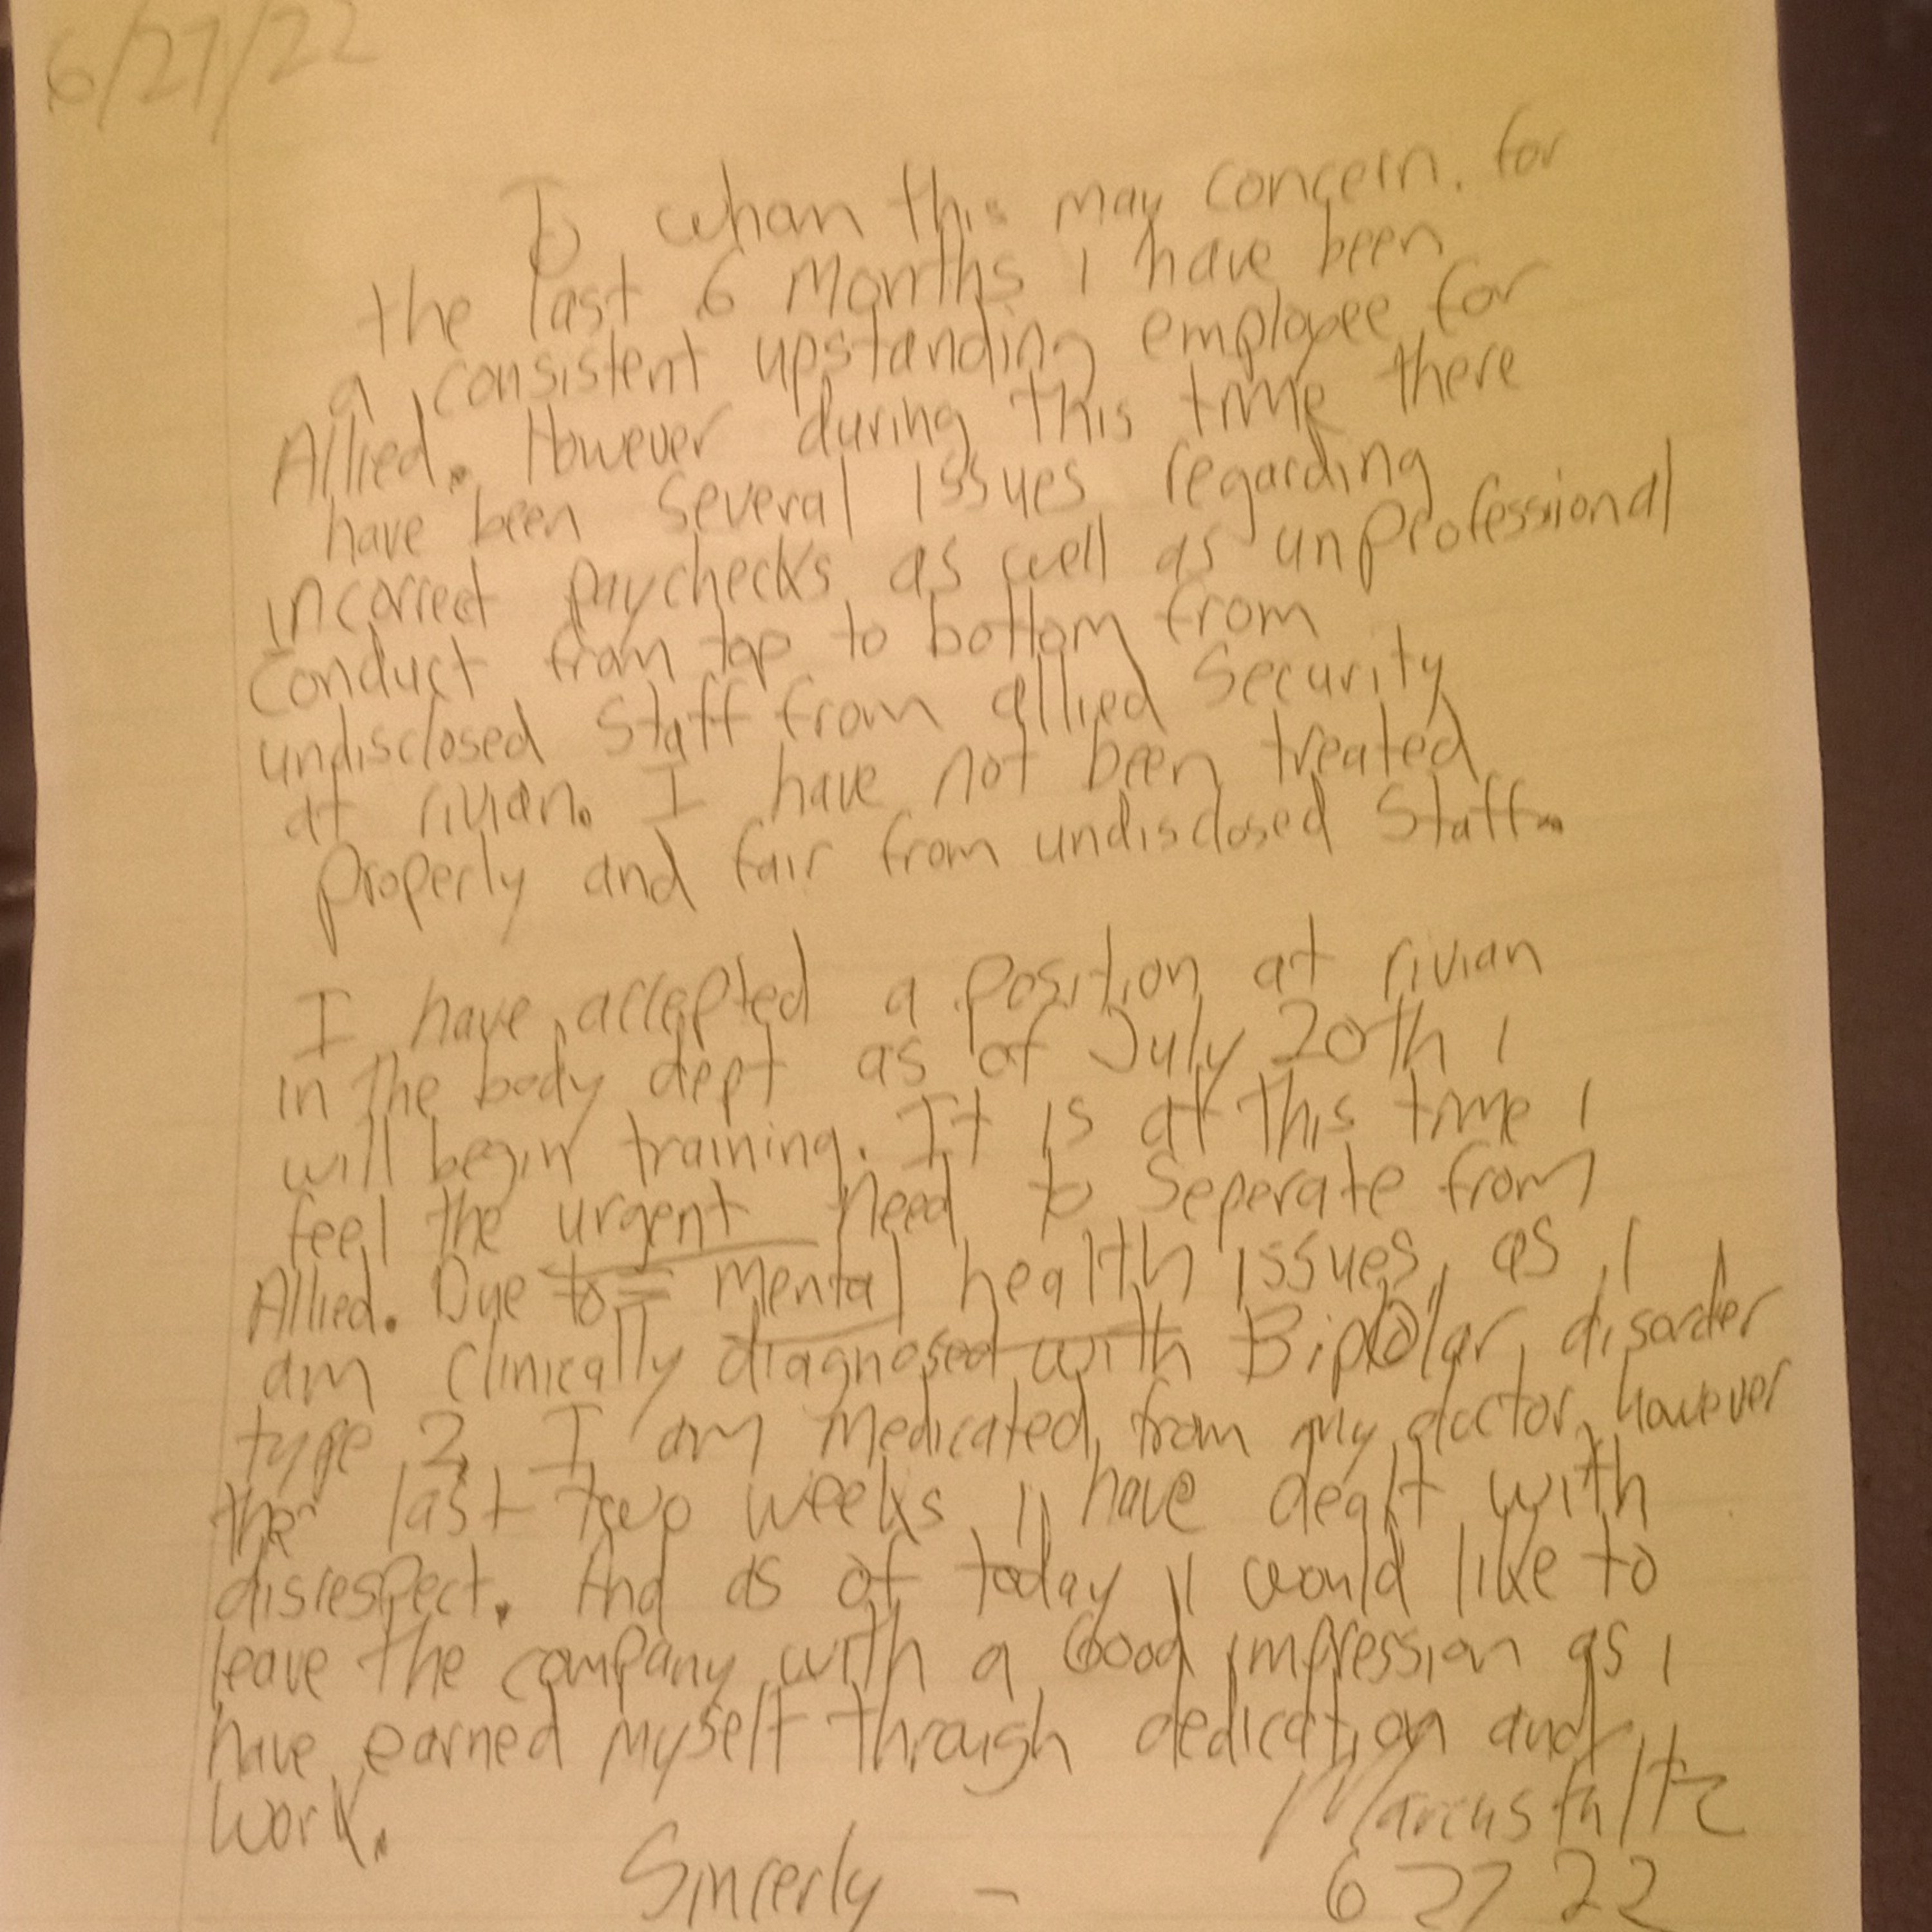 6/27/22
To whom this may concern. for
the last 6 months I have been
a consistent upstanding employee for
Allied. However during this time there
have been several issues regarding
incorrect paychecks as well as unprofessional
conduct from top to bottom from
undisclosed staff from allied Security
at rivian. I have not been treated
properly and fair from undisclosed staff.
I have accepted a position at rivian
in the body dept as of July 20th I
will begin training. It is at this time I
feel the urgent need to seperate from
Allied. Due to mental health issues, as I
am clinically diagnosed with Bipolar disorder
type 2. I am medicated from my doctor, however
the last two weeks I have dealt with
disrespect. And as of today I would like to
leave the company with a Good impression as I
have earned myself through dedication and
work.
Marcus
Sincerly -
6 27 22